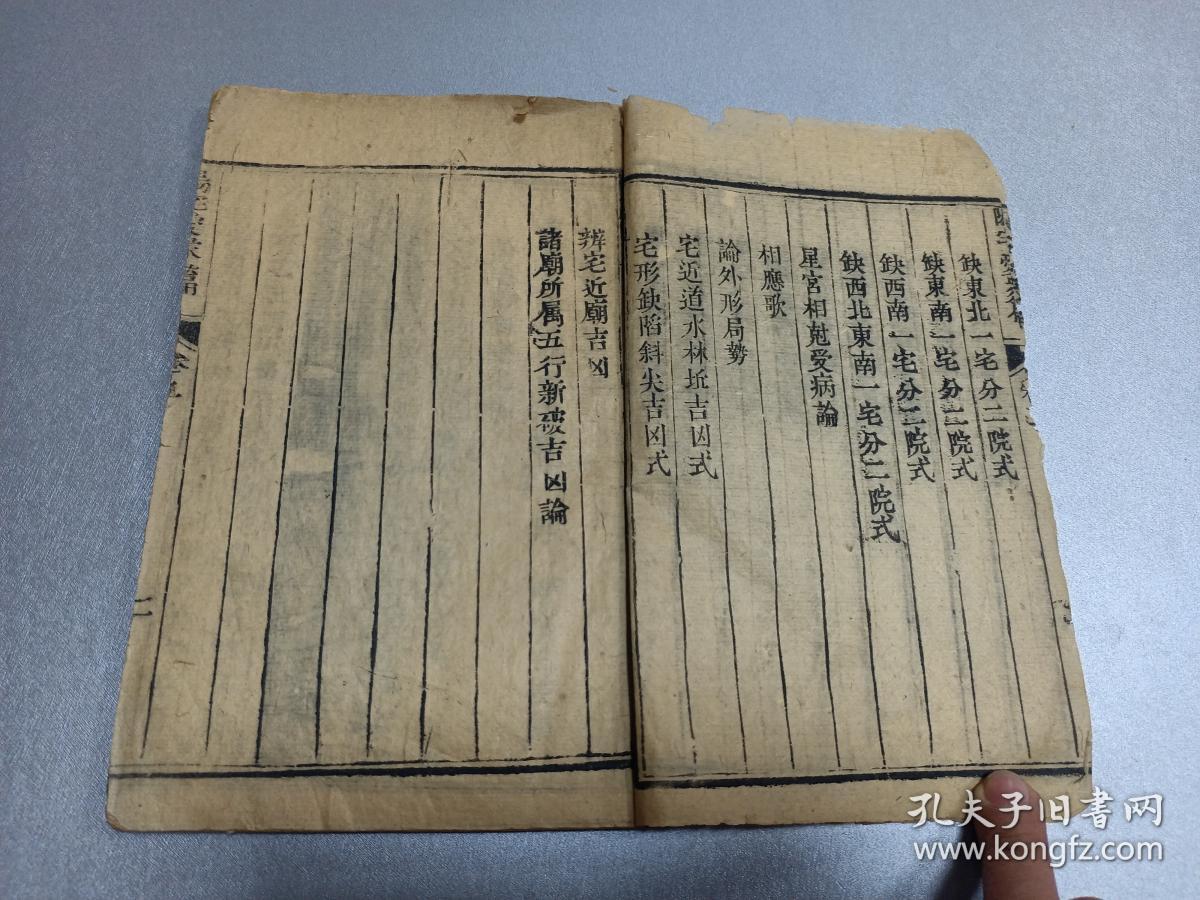 缺東北一宅分二院式
缺東南一宅分二院式
缺西南一宅分二院式
缺西北東南一宅分二院式
星宮相尅受病論
相應歌
論外形局勢
宅近道水林坵吉凶式
宅形缺陷斜尖吉凶式
辨宅近廟吉凶
諸廟所属五行新破吉凶論
二
孔夫子旧书网
www.kongfz.com